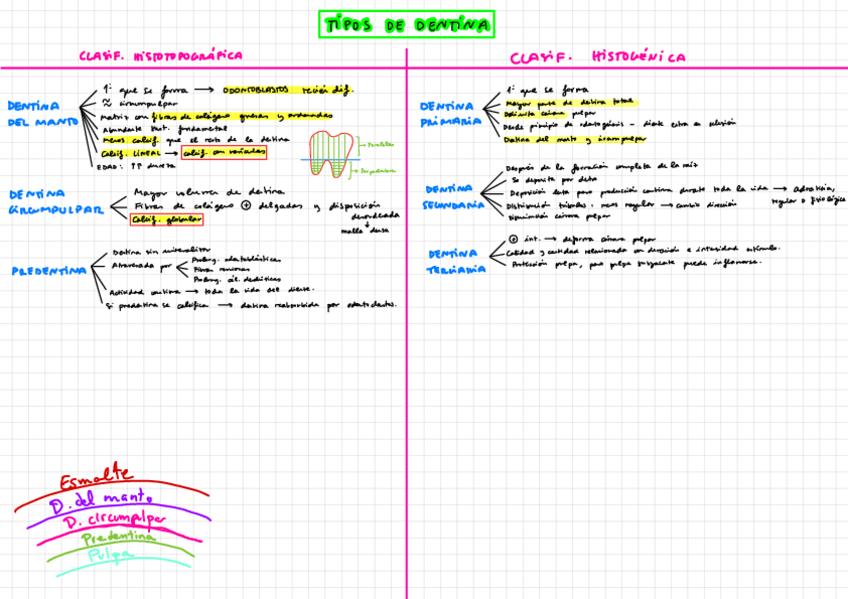 TIPOS DE DENTINA
CLASIF. HISTOTOPOGRÁFICA
DENTINA DEL MANTO
1ª que se forma → ODONTOBLASTOS recién dif.
≈ circumpulpar
Matriz con fibras de colágeno gruesas y ordenadas
Abundante sust. fundamental
Menos calcif. que el resto de la dentina
Calcif. LINEAL → calcif. con vesículas
EDAD: ↑↑ dureza
DENTINA CIRCUMPULPAR
Mayor volumen de dentina
Fibras de colágeno ⊕ delgadas y disposición desordenada
↓
malla densa
Calcif. globular
PREDENTINA
Dentina sin mineralizar
Atravesada por
Prolong. odontoblásticas
Fibras nerviosas
Prolong. cél. dendríticas
Actividad continua → toda la vida del diente.
Si predentina se calcifica → dentina reabsorbida por odontoclastos.
Esmalte
D. del manto
D. circumpulpar
Predentina
Pulpa
CLASIF. HISTOGÉNICA
DENTINA PRIMARIA
1ª que se forma
Mayor parte de dentina total
Delimita cámara pulpar
Desde principio de odontogénesis - diente entra en oclusión
Dentina del manto y circumpulpar
DENTINA SECUNDARIA
Después de la formación completa de la raíz
Se deposita por dentro
Deposición lenta pero producción continua durante toda la vida →
regular o fisiológica
Distribución túbulos: menos regular → cambio dirección
Disminución cámara pulpar
DENTINA TERCIARIA
⊕ int. → deforma cámara pulpar
Calidad y cantidad relacionada con duración e intensidad estímulo.
Protección pulpa, pero pulpa subyacente puede inflamarse.